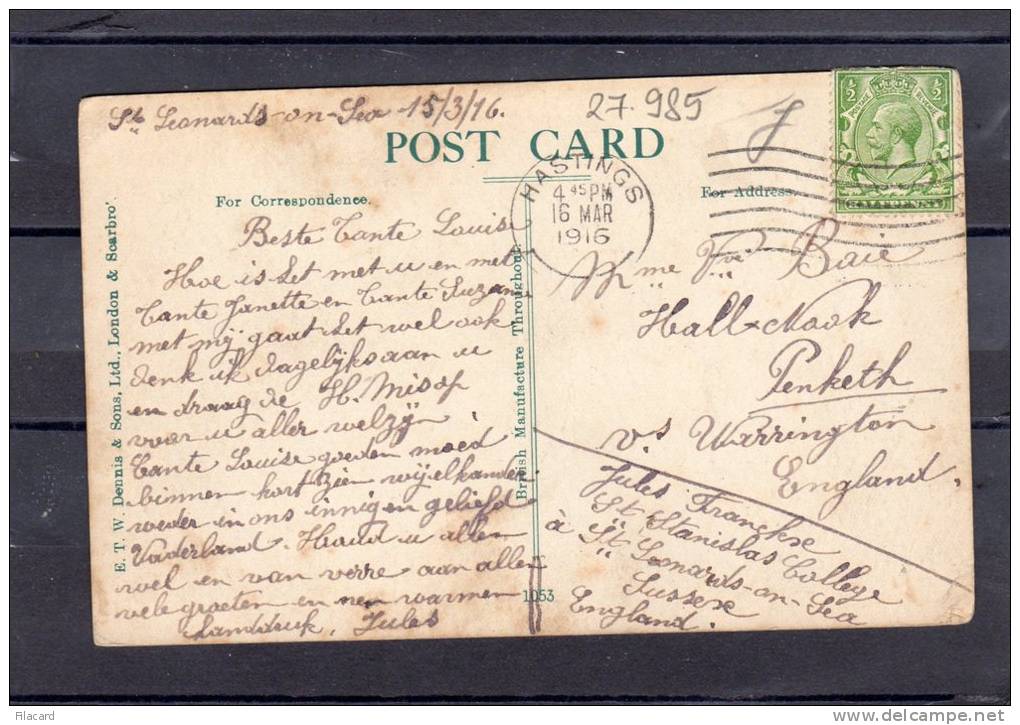 St Leonards-on-Sea 15/3/16.
27.985
POST CARD
For Correspondence.
For Address.
HASTINGS
4 45 PM
16 MAR
1916
½ ½
POSTAGE REVENUE
HALFPENNY
E. T. W. Dennis & Sons, Ltd., London & Scarbro'.
British Manufacture Throughout.
1053
Beste Tante Louise
Hoe is het met u en met
Tante Janette en Tante Suzanne
met mij gaat het wel ook
denk ik dagelijks aan u
en draag de H. Mis op
voor u aller welzijn
Tante Louise goeden moed
binnen kort zien wij elkander
weder in ons innig en geliefd
Vaderland. Houd u allen
wel en van verre aan allen
vele groeten en nen warmen
handdruk. Jules
Mme Vve Baie
Hall Nook
Penketh
vs Warrington
England.
Jules Franckse
St Stanislas College
à St Leonards-on-Sea
Sussex
England.
Filacard
www.delcampe.net